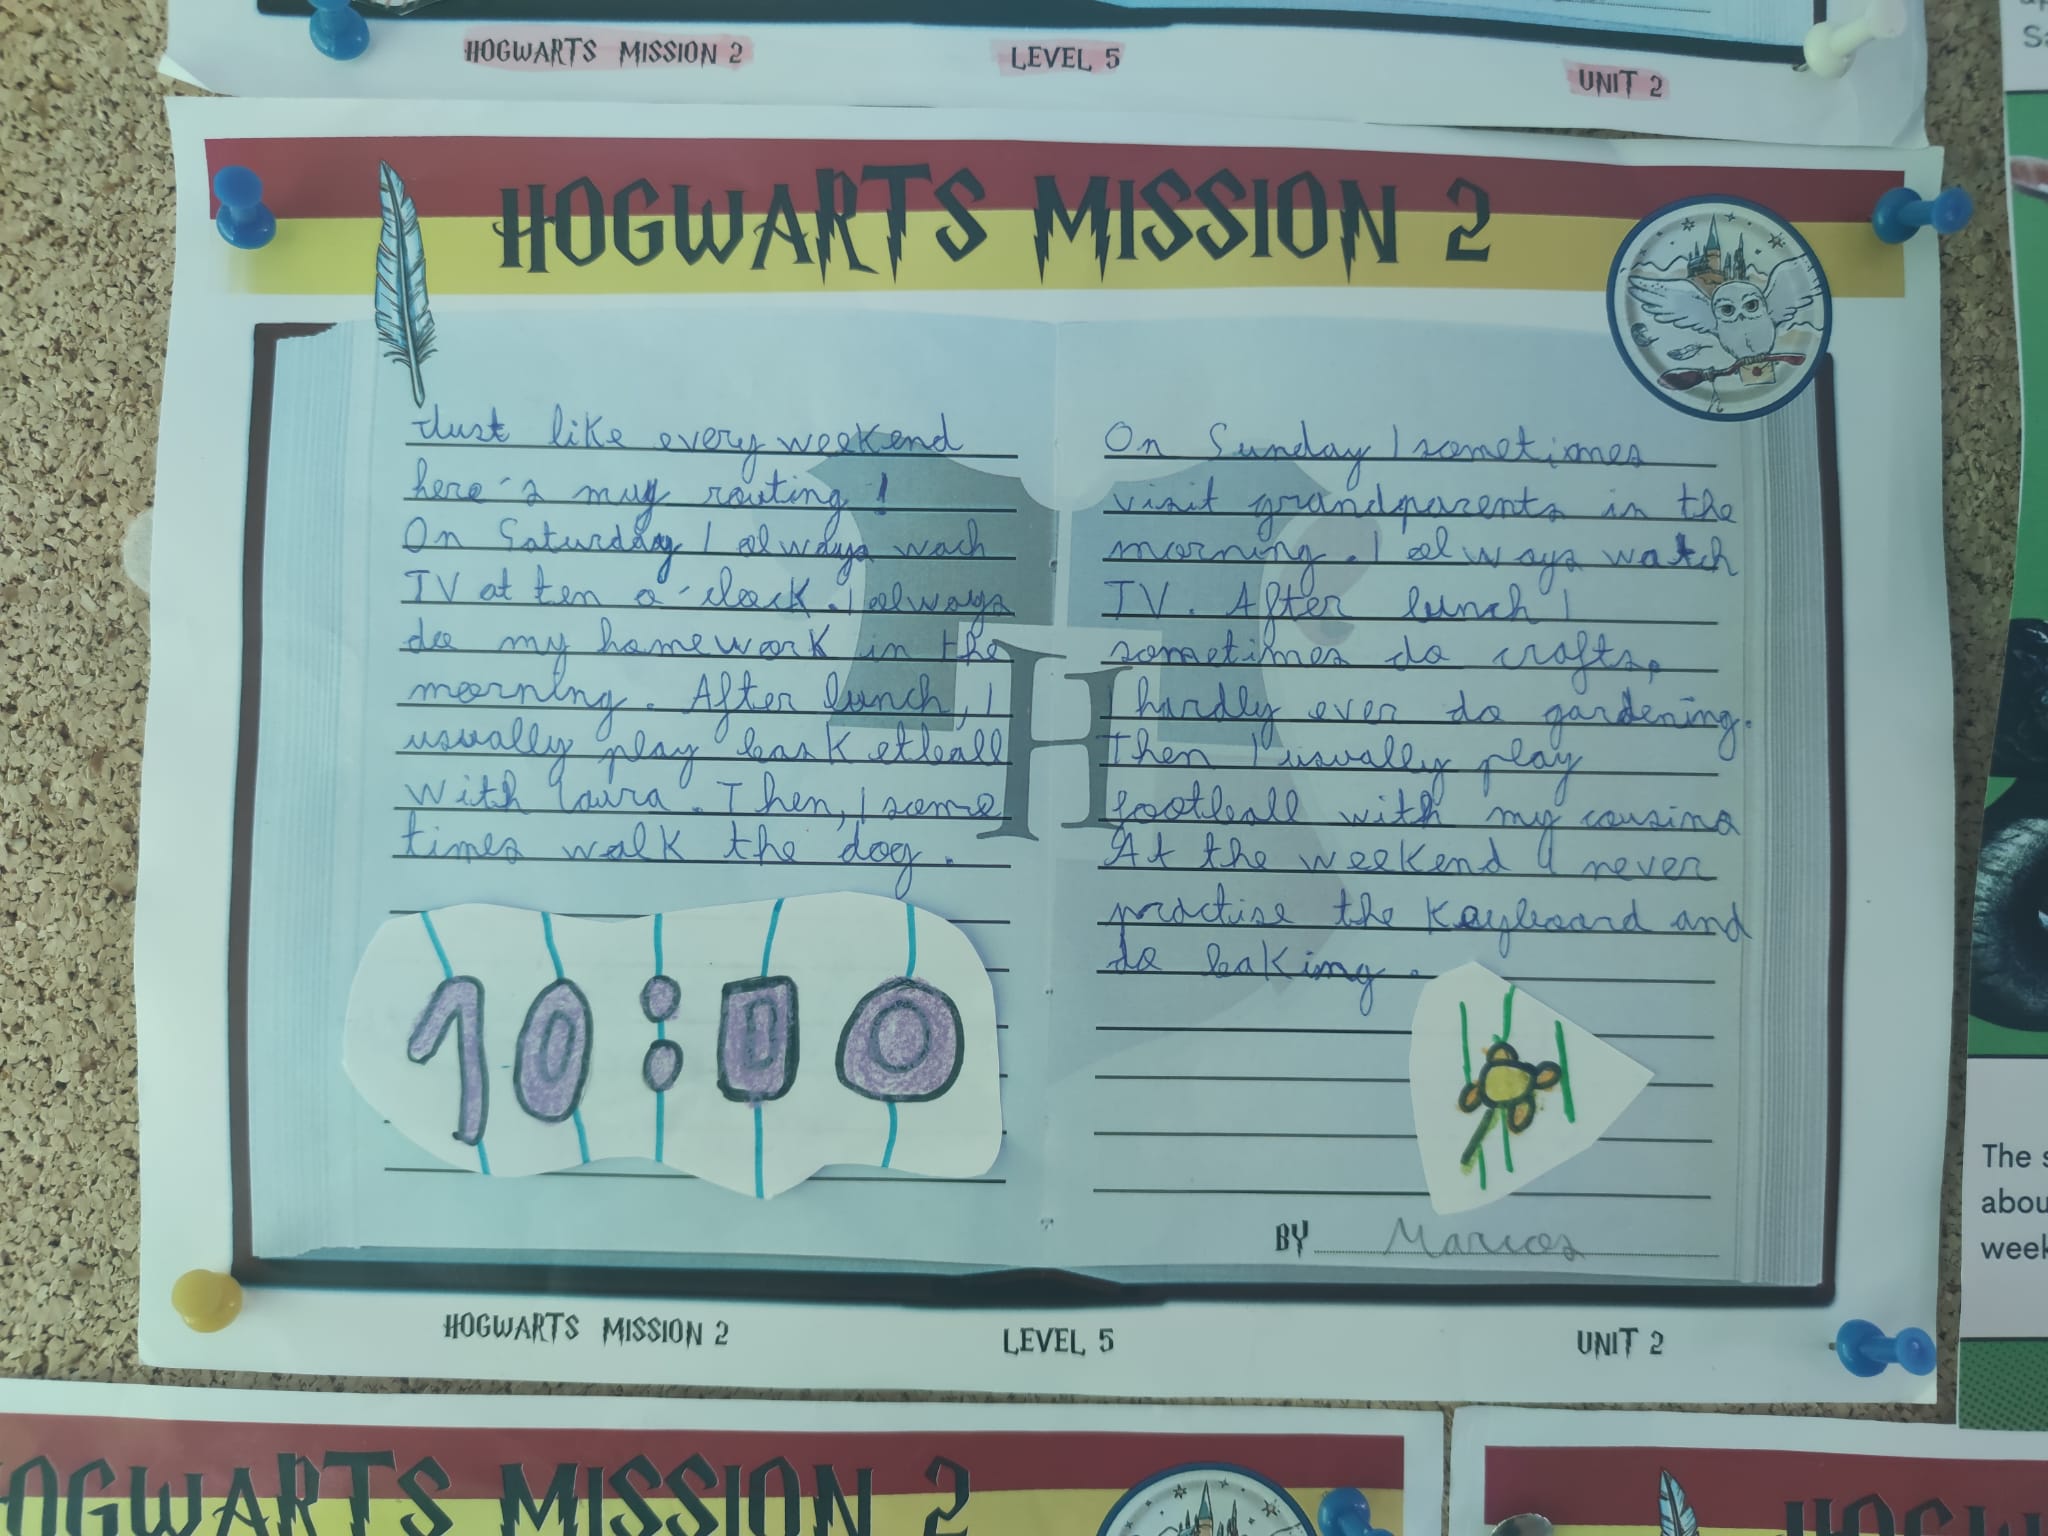 HOGWARTS MISSION 2 LEVEL 5 UNIT 2
HOGWARTS MISSION 2
Just like every weekend
here's my routing!
On Saturday I always wach
TV at ten o'clock. I always
do my homework in the
morning. After lunch, I
usually play basketball
with Laura. Then, I some
times walk the dog.
10:00
On Sunday I sometimes
visit grandparents in the
morning. I always watch
TV. After lunch I
sometimes do crafts.
I hardly ever do gardening.
Then I usually play
football with my cousins
At the weekend I never
practise the Kayboard and
do baking.
BY Marcos
HOGWARTS MISSION 2 LEVEL 5 UNIT 2
The
abou
week
HOGWARTS MISSION 2